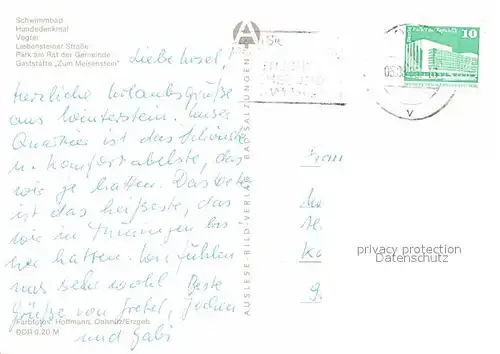 Schwimmbad
Hundedenkmal
Vogtei
Liebensteiner Straße
Park am Rat der Gemeinde
Gaststätte „Zum Meisenstein"
Liebe Insel!
Herzliche Urlaubsgrüße
aus Winterstein. Unser
Quartier ist das Schönste
u. komfortabelste, das
wir je hatten. Das Wetter
ist das heißeste, das
wir in Thüringen bis-
her hatten. Wir fühlen
uns sehr wohl. Beste
Grüße von Gretel, Jochen
und Gabi
Farbfotos: Hoffmann, Oelsnitz/Erzgeb.
DDR 0,20 M
AUSLESE-BILD-VERLAG BAD SALZUNGEN
A
10
V
privacy protection
Datenschutz